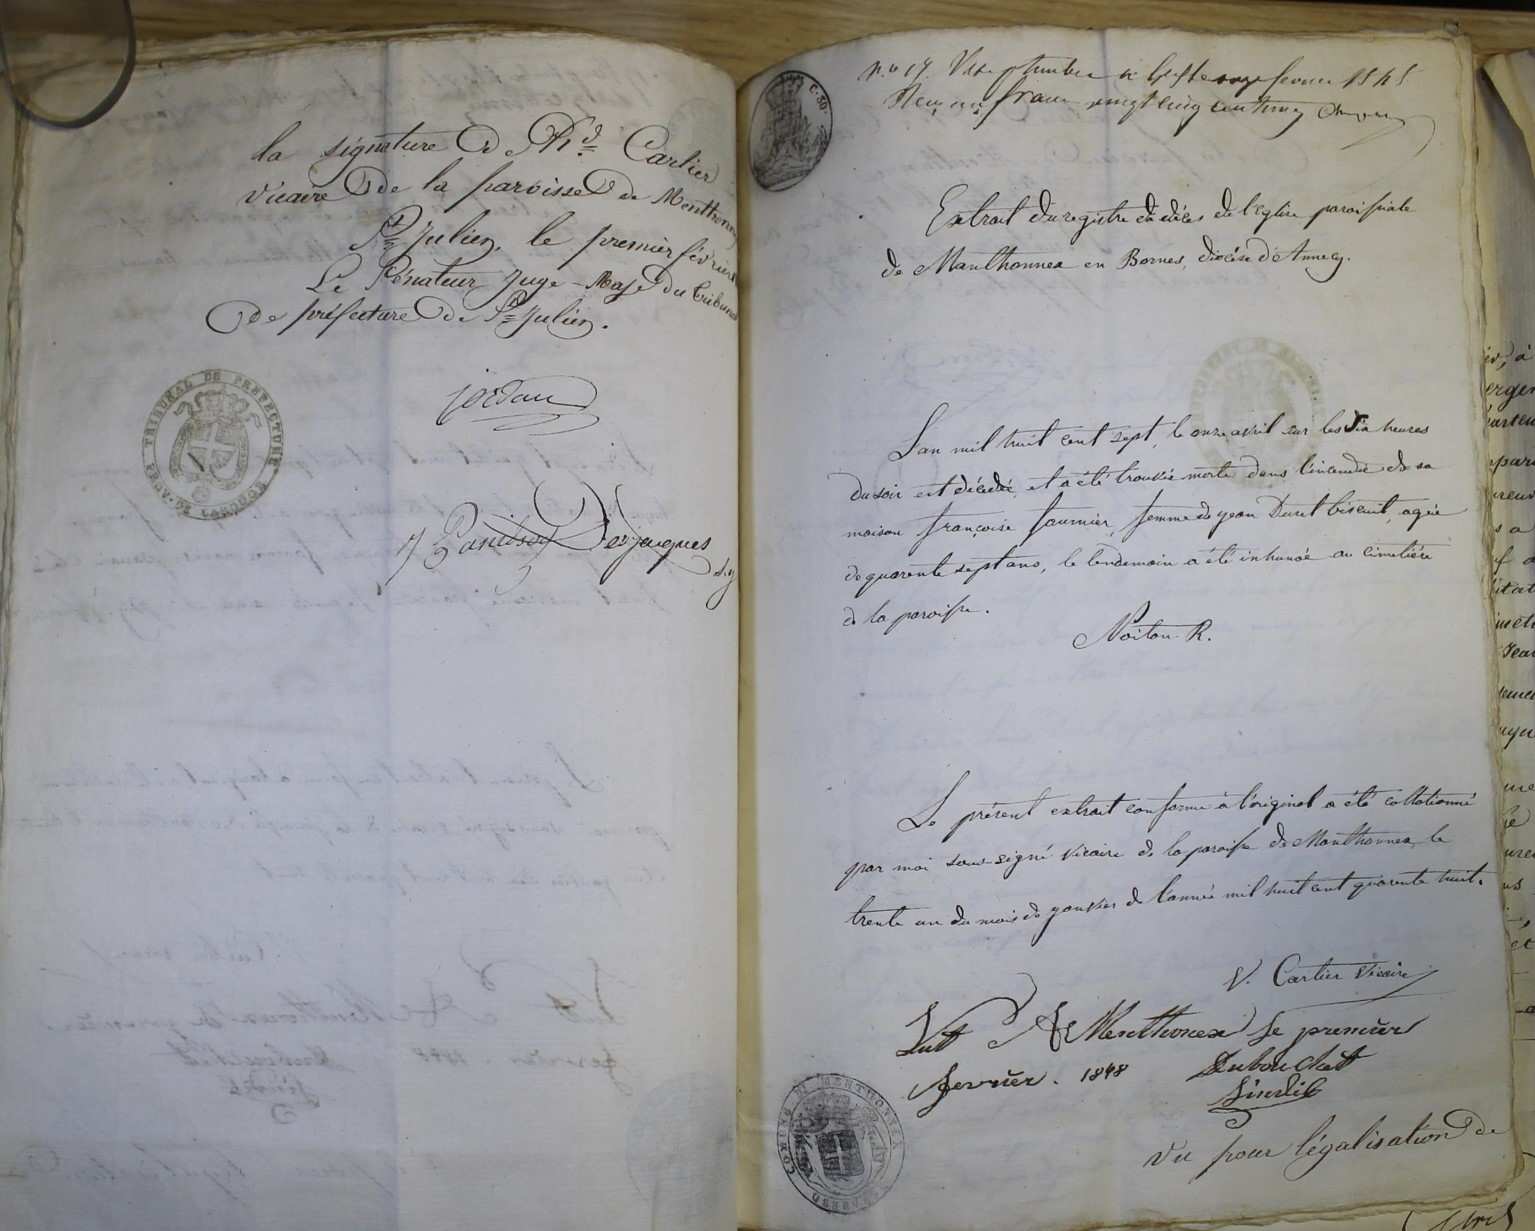 la signature de Rd Carlier
vicaire de la paroisse de Menthonnex
St Julien, le premier février
Le Sénateur Juge-Maje du Tribunal
de préfecture de St Julien.
TRIBUNAL DE PREFECTURE
Jordan
Desjacques
C. 50
N.o 17.
francs vingt cinq centimes
Extrait du registre de décès de l'Eglise paroissiale
de Manthonnex en Bornes, diocèse d'Annecy.
L'an mil huit cent sept, le onze avril sur les dix heures
du soir est décédée, et a été trouvée morte dans l'incendie de sa
maison françoise fournier, femme de jean Duret biscuit, agée
de quarente sept ans, le lendemain a été inhumée au cimetière
de la paroisse.
Noiton R.
Le présent extrait conforme à l'original a été collationné
par moi sous-signé vicaire de la paroisse de Manthonnex, le
trente un du mois de janvier de l'année mil huit cent quarente huit.
V. Cartier vicaire
Vut A Menthonex le premier
fevrier. 1848 Dubouchet
Sindic
COMUNE DI MENTHONNEX
Vu pour légalisation de